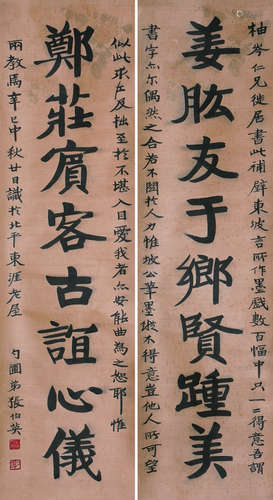 柚岑仁兄徙居書此補壁東坡言所作墨戲數百幅中只一二得意吾謂
姜肱友于鄉賢踵美
書字亦尔偶然之合若不關於人力惟坡公筆墨縱不得意豈他人所可望
似此求工反拙至於不堪入目愛我者亦安能曲為之恕耶惟
鄭莊賓客古誼心儀
兩教焉辛巳中秋廿日識於北平東涯老屋
勺圃弟張伯英